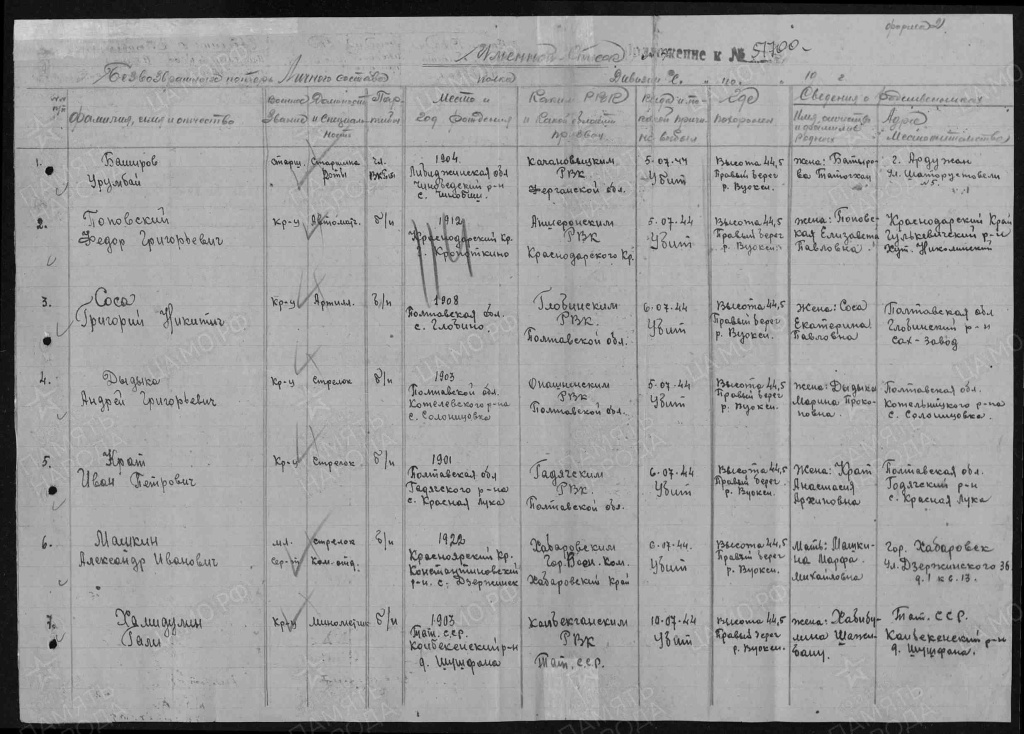 форма 2
Именной Список
Приложение к № 51700
Безвозвратного потерь Личного состава полка Дивизии
№№ п/п
Фамилия, имя и отчество
Воинское Звание
Должность и Специальность
Партийн
Место и Год рождения
Каким РВК и Какой области призван
Когда и по какой причине выбыл
Где похоронен
Сведения о родственниках
Имя, отчество и фамилия родных
Адрес Местожительства
1. Баширов Урумбай
Старш. Старшина Роты
чл. ВКПб
1904.
с. Чиноведский р-н
РВК
Ферганской обл.
5-07-44 Убит
Высота 44,5 Правый берег р. Вуокси
жена: Батырова
г. Ардужан
ул. Шаторуставели №5.
2. Поповский Федор Григорьевич
Кр-ц Автомат. б/п
1912 Краснодарский Кр. г. Кропоткино
Апшеронским РВК Краснодарского Кр
5-07-44 Убит
Высота 44,5 Правый берег р. Вуокси.
жена: Поповская Елизавета Павловна
Краснодарский Край Гулькевичский р-н Хут. Николинский
3. Соса Григорий Никитич
Кр-ц Артилл. б/п
1908 Полтавская обл. с. Глобино.
Глобинским РВК. Полтавской обл.
6-07-44 Убит
Высота 44,5 Правый берег р. Вуокси.
Жена: Соса Екатерина Павловна
Полтавская обл Глобинский р-н Сах-завод
4. Дыдыка Андрей Григорьевич
Кр-ц Стрелок б/п
1903 Полтавской обл. Котелевского р-на с. Солоницовка
Опашненским РВК Полтавской обл.
5-07-44 Убит
Высота 44,5 Правый берег р. Вуокси
жена: Дыдыка Марина Прокоповна.
Полтавская обл. Котельницкого р-на с. Солоницовка
5. Крат Иван Петрович
Кр-ц Стрелок б/п
1901 Полтавская обл Гадячского р-на с. Красная Лука
Гадячским РВк. Полтавской обл.
6-07-44 Убит
Высота 44,5 Правый берег р. Вуокси.
Жена: Крат Анастасия Архиповна
Полтавская обл. Годячский р-н с. Красная Лука
6. Машкин Александр Иванович
мл. Сер-нт стрелок Ком. отд. б/п
1922 Красноярский Кр. Константиновский р-н. с. Дзержинск
Хабаровским Гор. Воен. Ком. Хабаровский Край
6-07-44. Убит
Высота 44,5 Правый берег р. Вуокси.
Мать: Машкина Марфа. Михайловна
Гор. Хабаровск ул. Дзержинского 36 д. 1 кв. 13.
7. Хамидулин Гали
Кр-ц Минометчик б/п
1903 Тат. с.с.р. Кайбекенский р-н д. Шушфана
РВК Тат. с.с.р.
10-07-44 Убит
Высота 44,5 Правый берег р. Вуокси.
жена: Хабибулина
Тат. ССР. Кайбекенский р-н д. Шушфана.